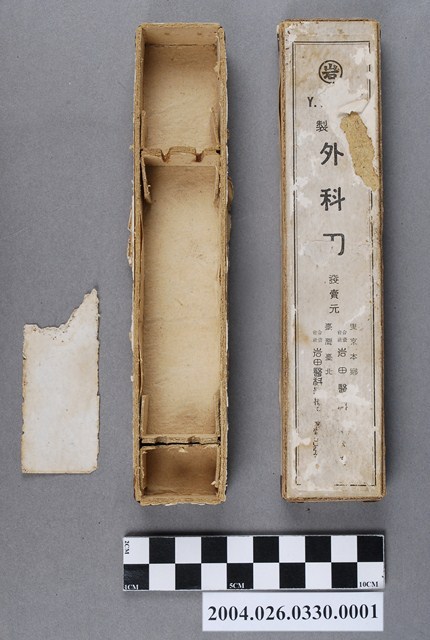 岩
Y.
製
外科刀
發賣元
東京本鄉
合資會社 岩田醫
臺灣臺北
合資會社 岩田醫
2CM
1CM
5CM
10CM
2004.026.0330.0001